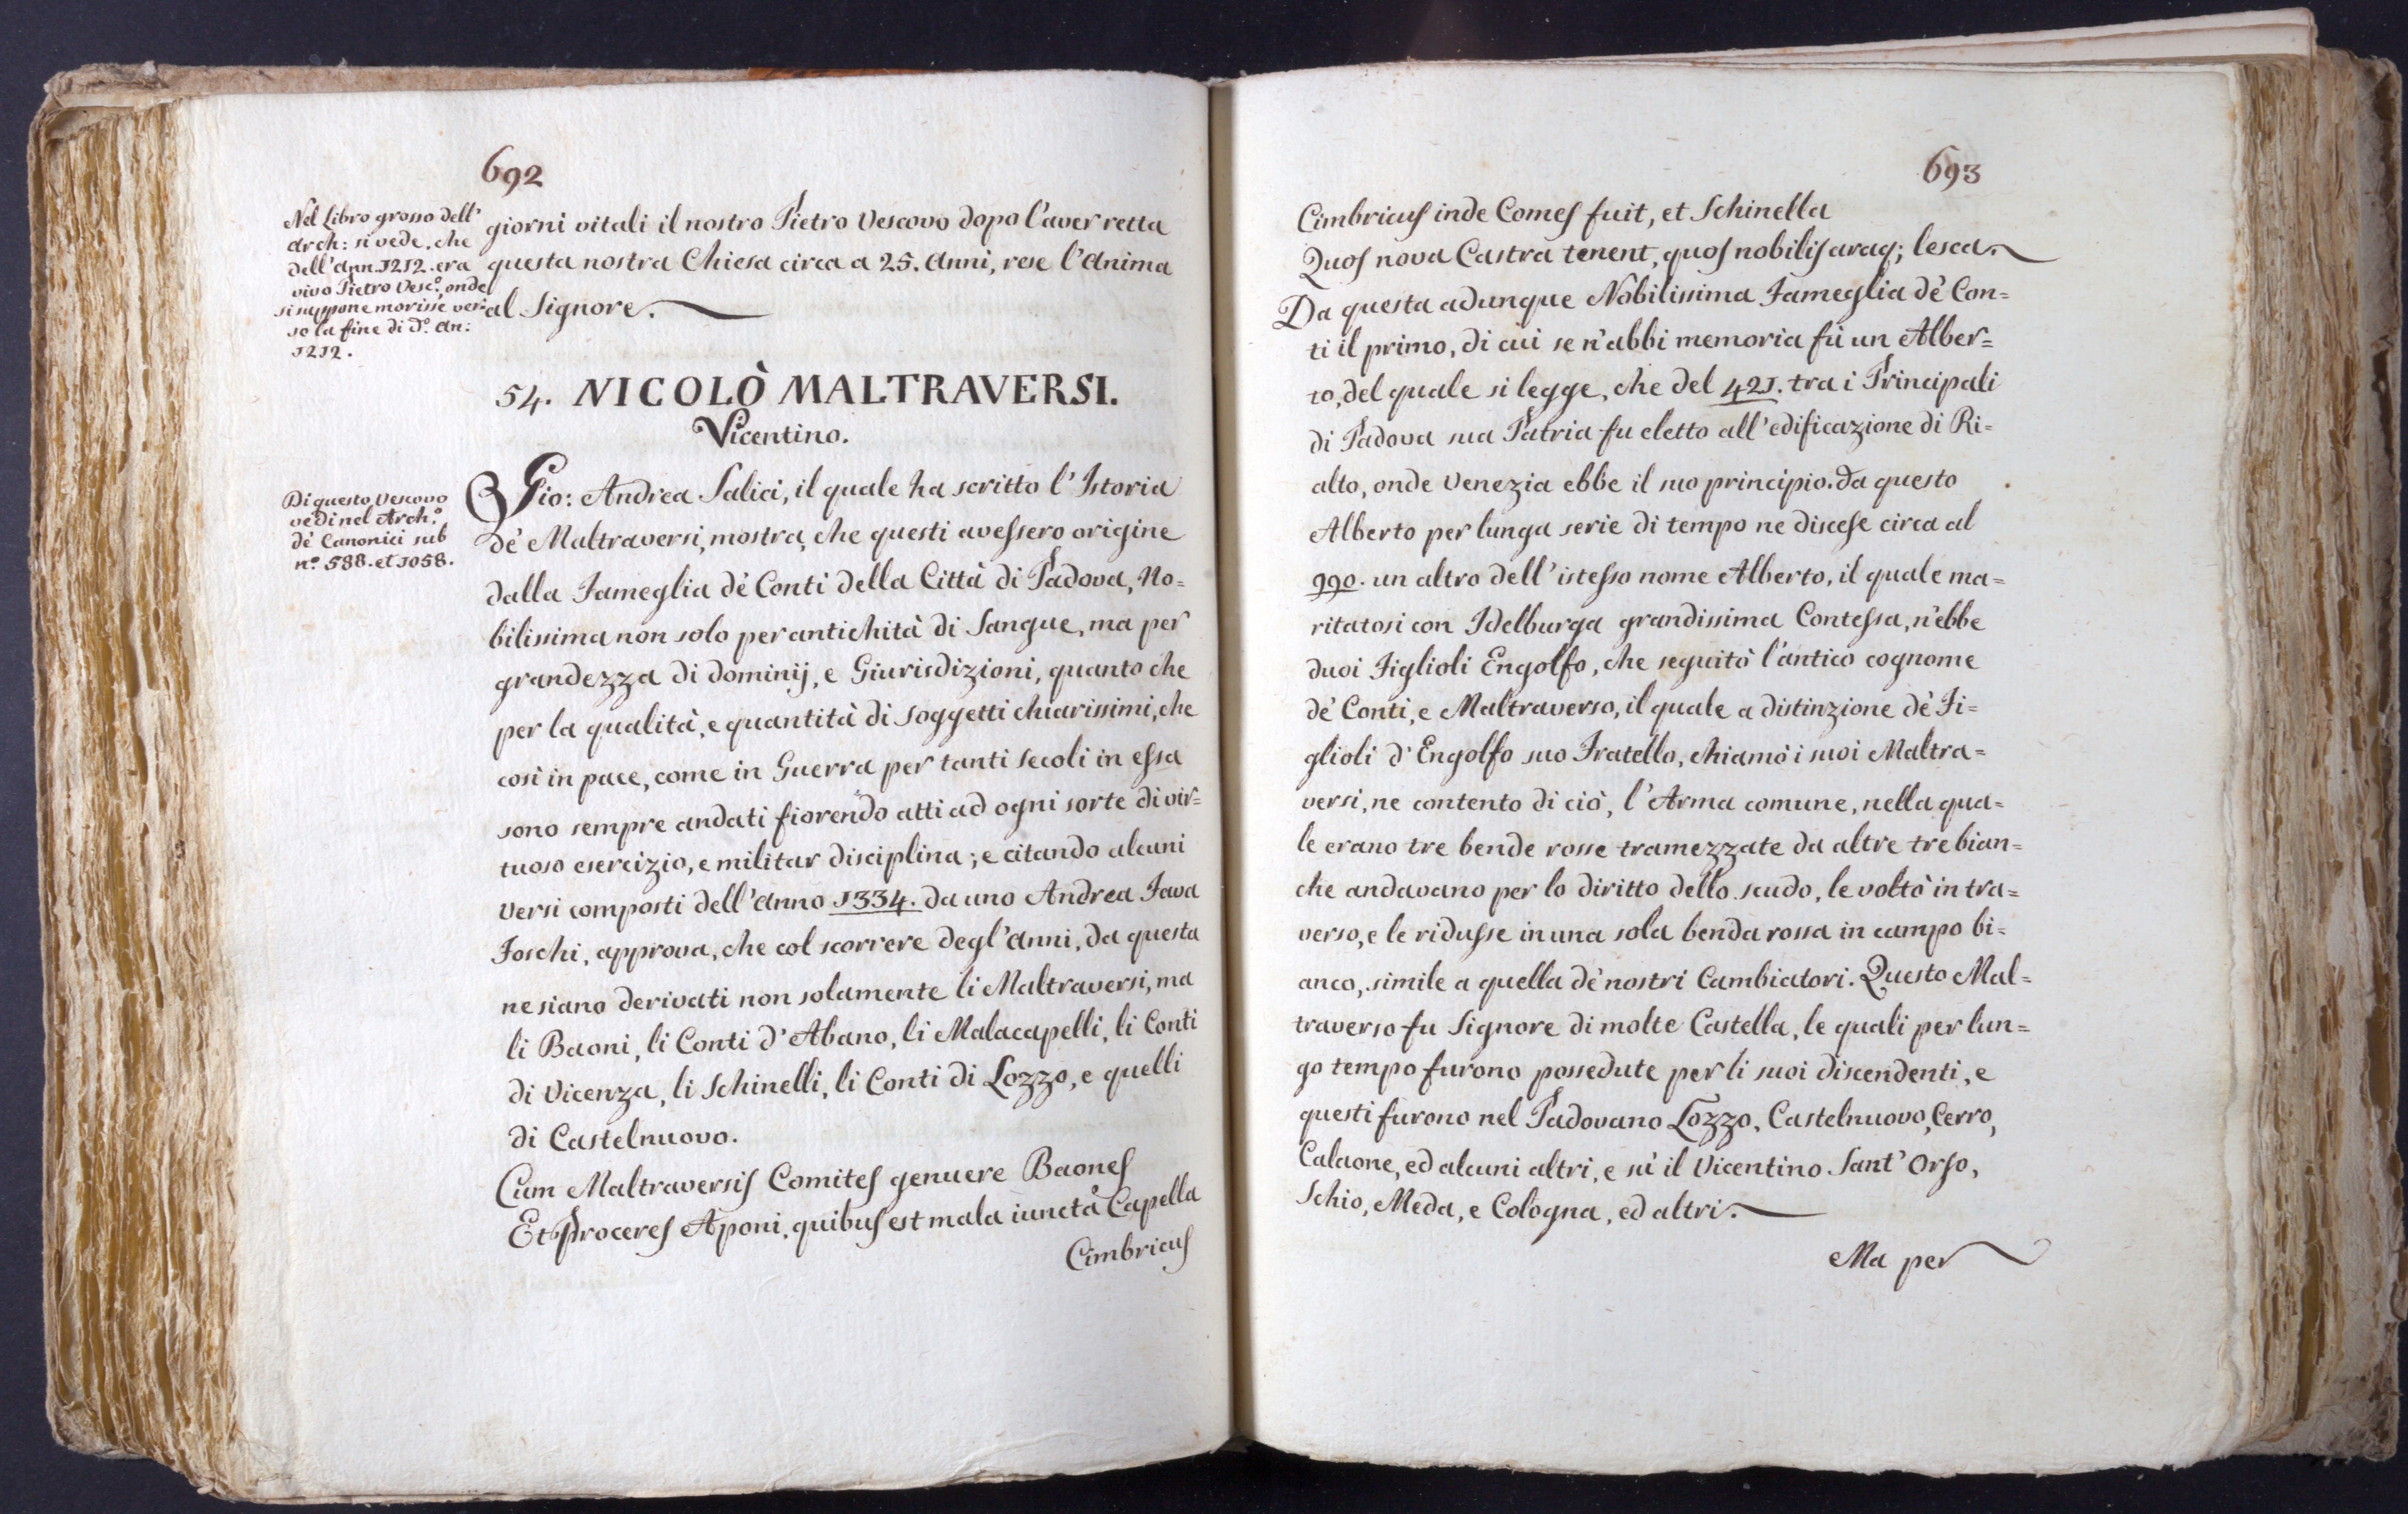 692
Nel Libro grosso dell'
Arch: si vede, che
dell'Ann. 1212. era
vivo Pietro Vesc.º onde
si suppone morisse ver:
so la fine di d.º An:
1212.
giorni vitali il nostro Pietro Vescovo dopo l'aver retta
questa nostra Chiesa circa a 25. Anni, rese l'Anima
al Signore.
54. NICOLÒ MALTRAVERSI.
Vicentino.
Di questo Vescovo
vedi nel Arch.º
de' Canonici sub
n.º 588. et 1058.
Gio: Andrea Salici, il quale ha scritto l'Istoria
de' Maltraversi, mostra, che questi avessero origine
dalla Fameglia de' Conti della Città di Padova, No=
bilissima non solo per antichità di Sangue, ma per
grandezza di dominij, e Giurisdizioni, quanto che
per la qualità, e quantità di soggetti chiarissimi, che
così in pace, come in Guerra per tanti secoli in essa
sono sempre andati fiorendo atti ad ogni sorte di vir=
tuoso esercizio, e militar disciplina; e citando alcuni
versi composti dell'Anno 1334. da uno Andrea Fava
Foschi, approva, che col scorrere degl'Anni, da questa
ne siano derivati non solamente li Maltraversi, ma
li Baoni, li Conti d'Abano, li Malacapelli, li Conti
di Vicenza, li Schinelli, li Conti di Lozzo, e quelli
di Castelnuovo.
Cum Maltraversis Comites genuere Baones
Et Proceres Aponi, quibus est mala iuncta Capella
Cimbricus
693
Cimbricus inde Comes fuit, et Schinella
Quos nova Castra tenent, quos nobilis araq; lesca.
Da questa adunque Nobilissima Fameglia de' Con=
ti il primo, di cui se n'abbi memoria fù un Alber=
to, del quale si legge, che del 421. tra i Principali
di Padova sua Patria fu eletto all'edificazione di Ri=
alto, onde Venezia ebbe il suo principio. Da questo
Alberto per lunga serie di tempo ne discese circa al
990. un altro dell'istesso nome Alberto, il quale ma=
ritatosi con Idelburga grandissima Contessa, n'ebbe
duoi Figlioli Engolfo, che seguitò l'antico cognome
de' Conti, e Maltraverso, il quale a distinzione de' Fi=
glioli d'Engolfo suo Fratello, chiamò i suoi Maltra=
versi, ne contento di ciò, l'Arma comune, nella qua=
le erano tre bende rosse tramezzate da altre tre bian=
che andavano per lo diritto dello scudo, le voltò in tra=
verso, e le ridusse in una sola benda rossa in campo bi=
anco, simile a quella de' nostri Cambiatori. Questo Mal=
traverso fu Signore di molte Castella, le quali per lun=
go tempo furono possedute per li suoi discendenti, e
questi furono nel Padovano Lozzo, Castelnuovo, Cerro,
Calaone, ed alcuni altri, e sù il Vicentino Sant'Orso,
Schio, Meda, e Cologna, ed altri.
Ma per